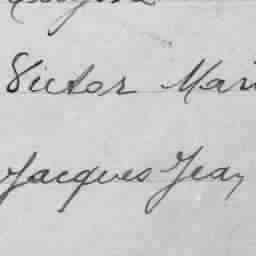 Victor Mari
Jacques Jean